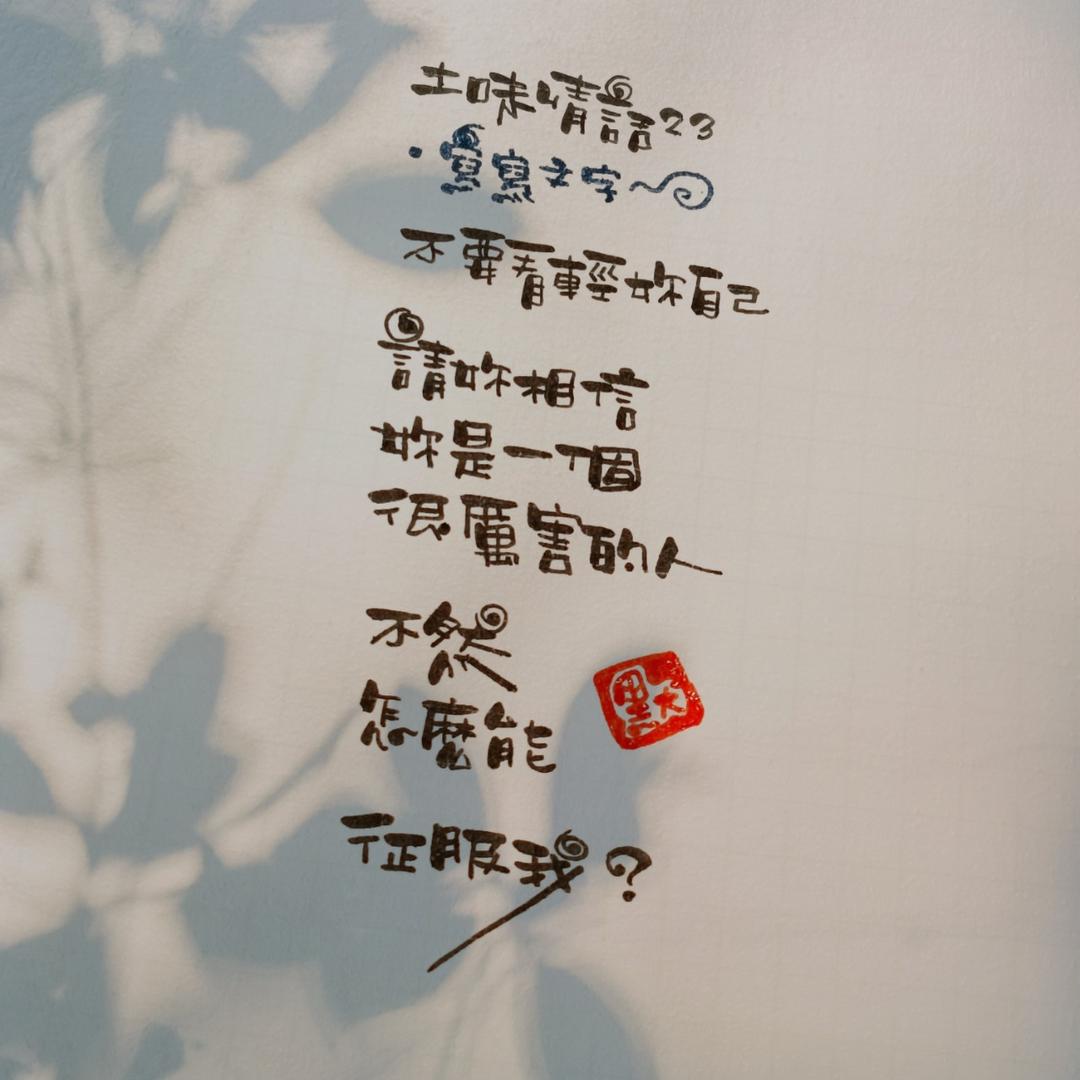 土味情話23
·寫寫文字～
不要看輕妳自己
請妳相信
妳是一個
很厲害的人
不然
怎麼能
征服我?